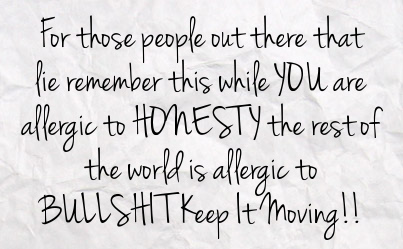 For those people out there that
lie remember this while YOU are
allergic to HONESTY the rest of
the world is allergic to
BULLSHIT Keep It Moving!!